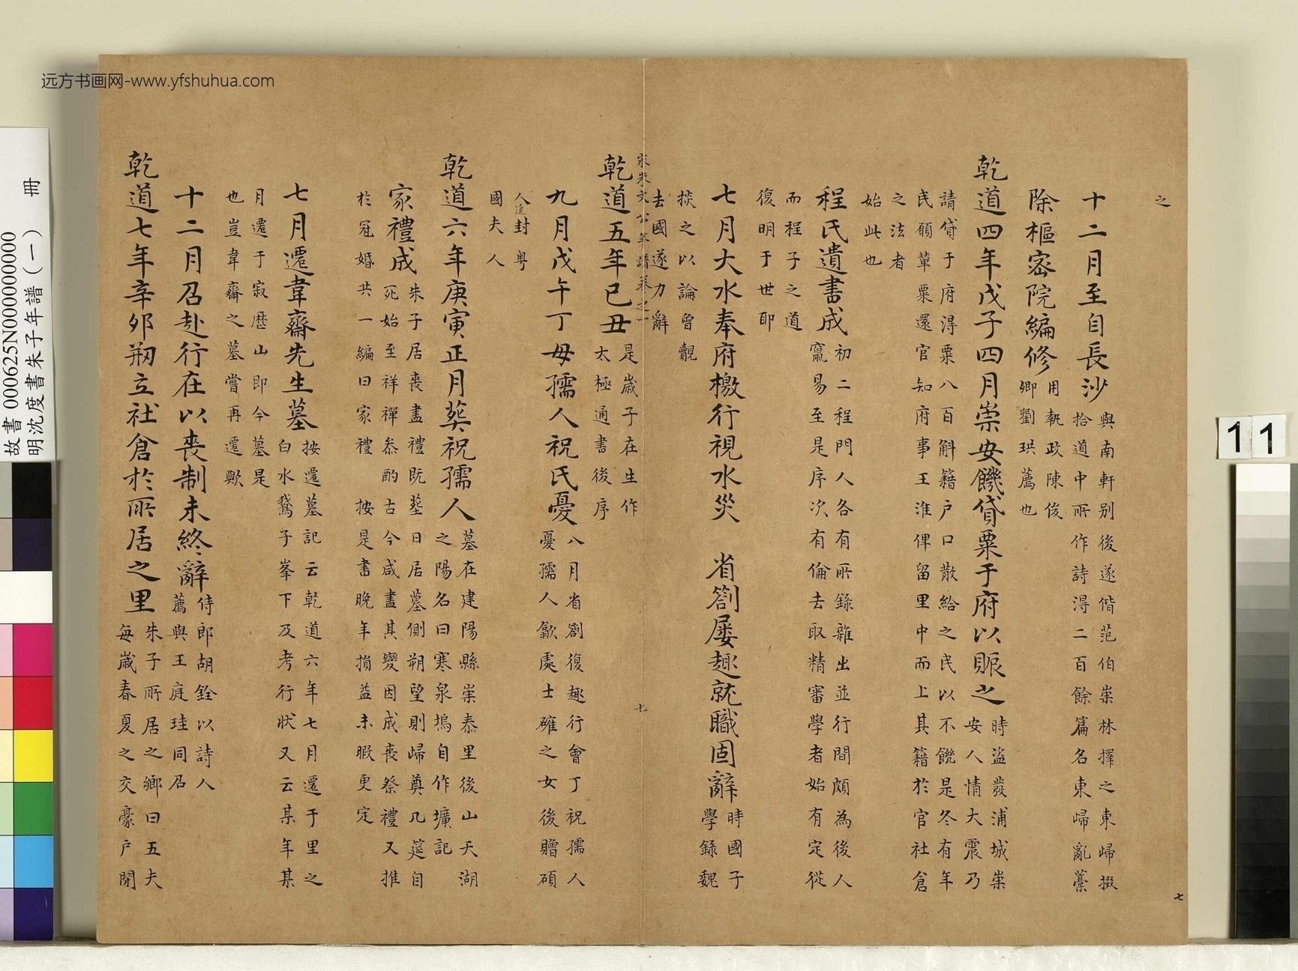 远方书画网-www.yfshuhua.com
之
十二月至自長沙與南軒别後遂偕范伯崇林擇之東歸掇
拾道中所作詩得二百餘篇名東歸亂藁
除樞密院編修用執政陳俊
卿劉珙薦也
乾道四年戊子四月崇安饑貸粟于府以賑之時盜發浦城崇
安人情大震乃
請貸于府得粟八百斛籍户口散給之民以不饑是冬有年
民願輦粟還官知府事王淮俾留里中而上其籍於官社倉
之法者
始此也
程氏遺書成初二程門人各有所錄雜出並行間頗為後人
竄易至是序次有倫去取精審學者始有定從
而程子之道
復明于世耶
七月大水奉府檄行視水災 省劄屢趣就職固辭時國子
學錄魏
掞之以論曾覿
去國遂力辭
宋朱文公年譜卷之一
七
乾道五年己丑是歲子在生作
太極通書後序
九月戊午丁母孺人祝氏憂八月省劄復趣行會丁祝孺人
憂孺人歙處士確之女後贈碩
人追封粤
國夫人
乾道六年庚寅正月葬祝孺人墓在建陽縣崇泰里後山天湖
之陽名曰寒泉塢自作壙記
家禮成朱子居喪盡禮既塟日居墓側朔望則歸奠几筵自
死始至祥禫叅酌古今咸盡其變因成喪祭禮又推
於冠婚共一編曰家禮 按是書晚年損益未暇更定
七月遷韋齋先生墓按遷墓記云乾道六年七月遷于里之
白水鵞子峯下及考行狀又云某年某
月遷于寂歴山即今墓是
也豈韋齋之墓嘗再遷歟
十二月召赴行在以喪制未終辭侍郎胡銓以詩人
薦與王庭珪同召
乾道七年辛夘剏立社倉於所居之里朱子所居之鄉曰五夫
每歲春夏之交豪户閉
七
故書 000625N000000000
明沈度書朱子年譜(一) 冊
11